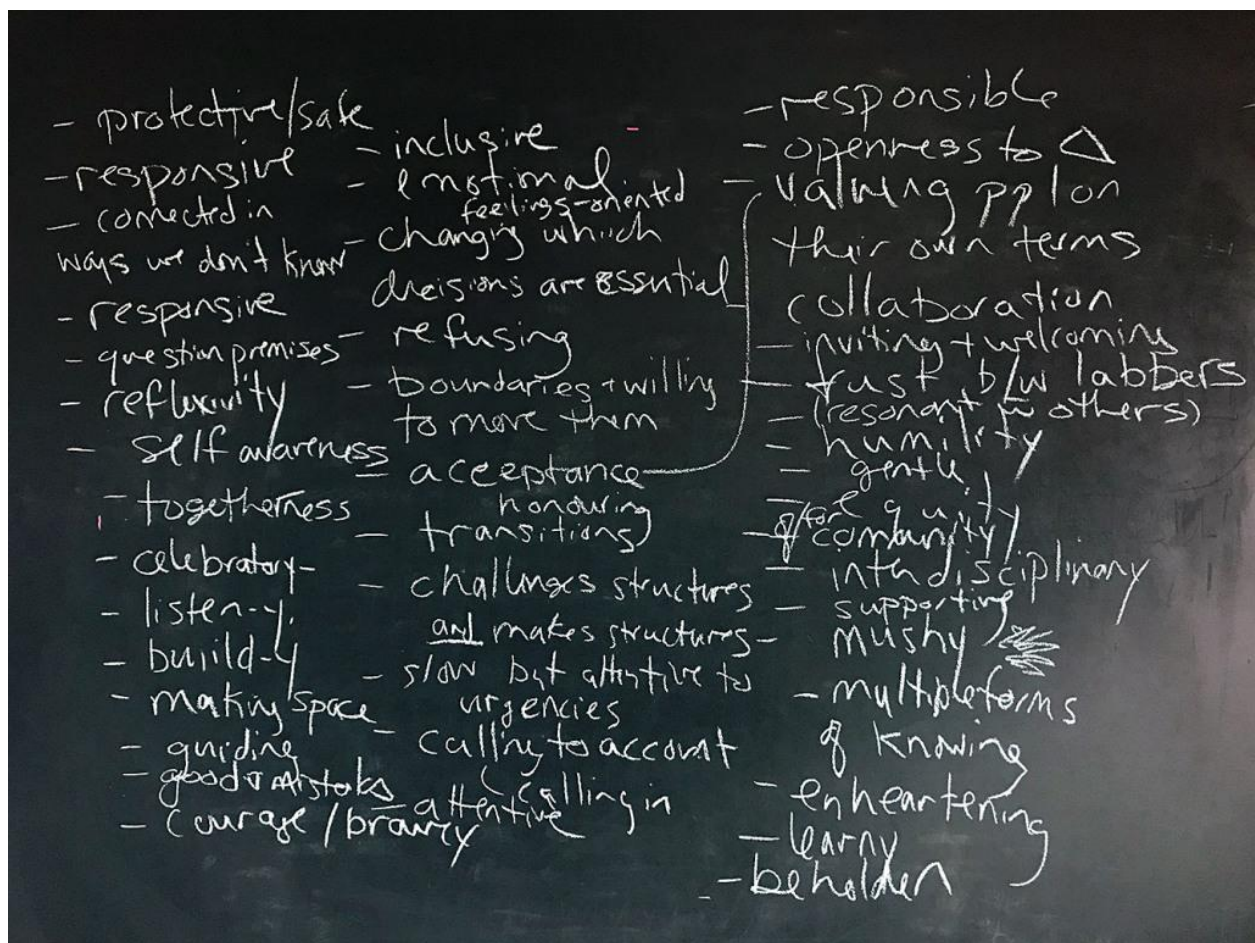 - protective/safe
- responsive
- connected in
ways we don't know
- responsive
- question premises
- reflexivity
- self awareness
- togetherness
- celebratory -
- listen-y
- build-y
- making space
- guiding
- good @ mistakes
- courage / bravery
- inclusive
- emotional
feelings-oriented
- changing which
decisions are essential
- refusing
- boundaries + willing
to move them
- acceptance
honouring
- transitions
- challenges structures
and makes structures
- slow but attentive to
urgencies
- calling to account
calling in
- attentive
- responsible
- openness to Δ
- valuing ppl on
their own terms
collaboration
- inviting + welcoming
- trust b/w labbers
- (resonant w others)
- humility
- gentle
- equity
- of/for community
- interdisciplinary
- supporting
- mushy
- multiple forms
of knowing
- enheartening
- learny
- beholden